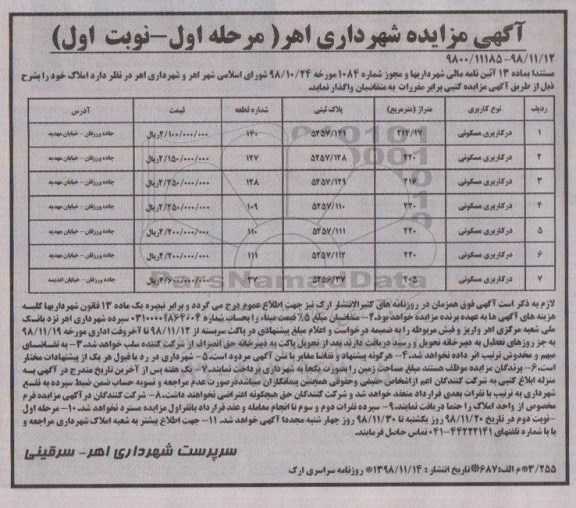 آگهی مزایده شهرداری اهر( مرحله اول-نوبت اول)
۹۸۰۰/۱۱۱۸۵-۹۸/۱۱/۱۲
مستندا بماده ۱۳ آئین نامه مالی شهرداریها و مجوز شماره ۱۰۸۴ مورخه ۹۸/۱۰/۲۴ شورای اسلامی شهر اهر و شهرداری اهر در نظر دارد املاک خود را بشرح
ذیل از طریق آگهی مزایده کتبی برابر مقررات به متقاضیان واگذار نماید.
ردیف نوع کاربری متراژ (مترمربع) پلاک ثبتی شماره قطعه قیمت آدرس
۱ درکاربری مسکونی ۲۱۴/۱۷ ۵۲۵۷/۱۴۱ ۱۴۰ ۲/۱۰۰/۰۰۰/۰۰۰ریال جاده ورزقان - خیابان مهدیه
۲ درکاربری مسکونی ۲۲۰ ۵۲۵۷/۱۲۸ ۱۲۷ ۲/۱۵۰/۰۰۰/۰۰۰ریال جاده ورزقان - خیابان مهدیه
۳ درکاربری مسکونی ۲۱۶ ۵۲۵۷/۱۲۹ ۱۲۸ ۲/۲۵۰/۰۰۰/۰۰۰ریال جاده ورزقان - خیابان مهدیه
۴ درکاربری مسکونی ۲۲۰ ۵۲۵۷/۱۱۰ ۱۰۹ ۲/۲۵۰/۰۰۰/۰۰۰ریال جاده ورزقان - خیابان مهدیه
۵ درکاربری مسکونی ۲۲۰ ۵۲۵۷/۱۱۱ ۱۱۰ ۲/۲۰۰/۰۰۰/۰۰۰ریال جاده ورزقان - خیابان مهدیه
۶ درکاربری مسکونی ۲۲۰ ۵۲۵۷/۱۱۲ ۱۱۱ ۲/۲۰۰/۰۰۰/۰۰۰ریال جاده ورزقان - خیابان مهدیه
۷ درکاربری مسکونی ۲۰۵ ۵۲۵۶/۳۷ ۳۷ جاده ورزقان - خیابان اندیشه
لازم به ذکر است آگهی فوق همزمان در روزنامه های کثیرالانتشار ارک نیز جهت اطلاع عموم درج می گردد و برابر تبصره یک ماده ۱۳ قانون شهرداریها کلیه
هزینه های آگهی ها به عهده برنده مزایده خواهد بود.۲- متقاضیان مبلغ ۵٪ قیمت مبناء را بحساب شماره سپرده شهرداری اهر نزد بانک
ملی شعبه مرکزی اهر واریز و فیش مربوطه را به ضمیمه درخواست و اعلام مبلغ پیشنهادی در پاکت سربسته از ۹۸/۱۱/۱۲ تا آخروقت اداری مورخه ۹۸/۱۱/۱۹
به جز روزهای تعطیل به دبیرخانه تحویل و رسید دریافت دارند. بعد از تحویل پاکت به دبیرخانه حق انصراف از شرکت کننده سلب خواهد شد.۳- به تقاضاهای
مبهم و مخدوش ترتیب اثر داده نخواهد شد. ۴- هرگونه پیشنهاد و تقاضا مغایر با متن آگهی مردود است.۵- شهرداری در رد یا قبول هر یک از پیشنهادات مختار
است.۶- برندگان مزایده موظف هستند مبلغ مساحت زمین را بصورت یکجا به شهرداری پرداخت نمایند.۷- یک هفته پس از آخرین تاریخ مندرج در آگهی به
منزله ابلاغ کتبی به شرکت کنندگان اعم از اشخاص حقیقی وحقوقی همچنین میباشد درصورت عدم مراجعه و تسویه حساب ضمن ضبط سپرده به نفع
شهرداری به ترتیب با نفرات بعدی قرارداد منعقد خواهد شد و شرکت کنندگان حق هیچگونه اعتراضی نخواهند داشت.۸- شرکت کنندگان در آگهی مزایده فرم
مخصوص از واحد املاک را حتما دریافت نمایند.۹- سپرده نفرات دوم و سوم تا انجام معامله و عقد قرارداد بانفراول مزایده مسترد نخواهد شد.۱۰- مرحله اول
-نوبت دوم در تاریخ ۹۸/۱۱/۲۰ روز یکشنبه تا ۹۸/۱۱/۳۰ روز چهار شنبه مجددا آگهی خواهد شد. ۱۱- جهت اطلاع بیشتر به شعبه املاک شهرداری مراجعه و
یا با شماره تلفنهای ۴۴۲۲۲۱۴۱-۰۴۱ تماس حاصل فرمایند.
سرپرست شهرداری اهر- سرقینی
۳/۲۵۵*م الف:۶۸۷*تاریخ انتشار : ۱۳۹۸/۱۱/۱۴* روزنامه سراسری ارک
ParsNamadData